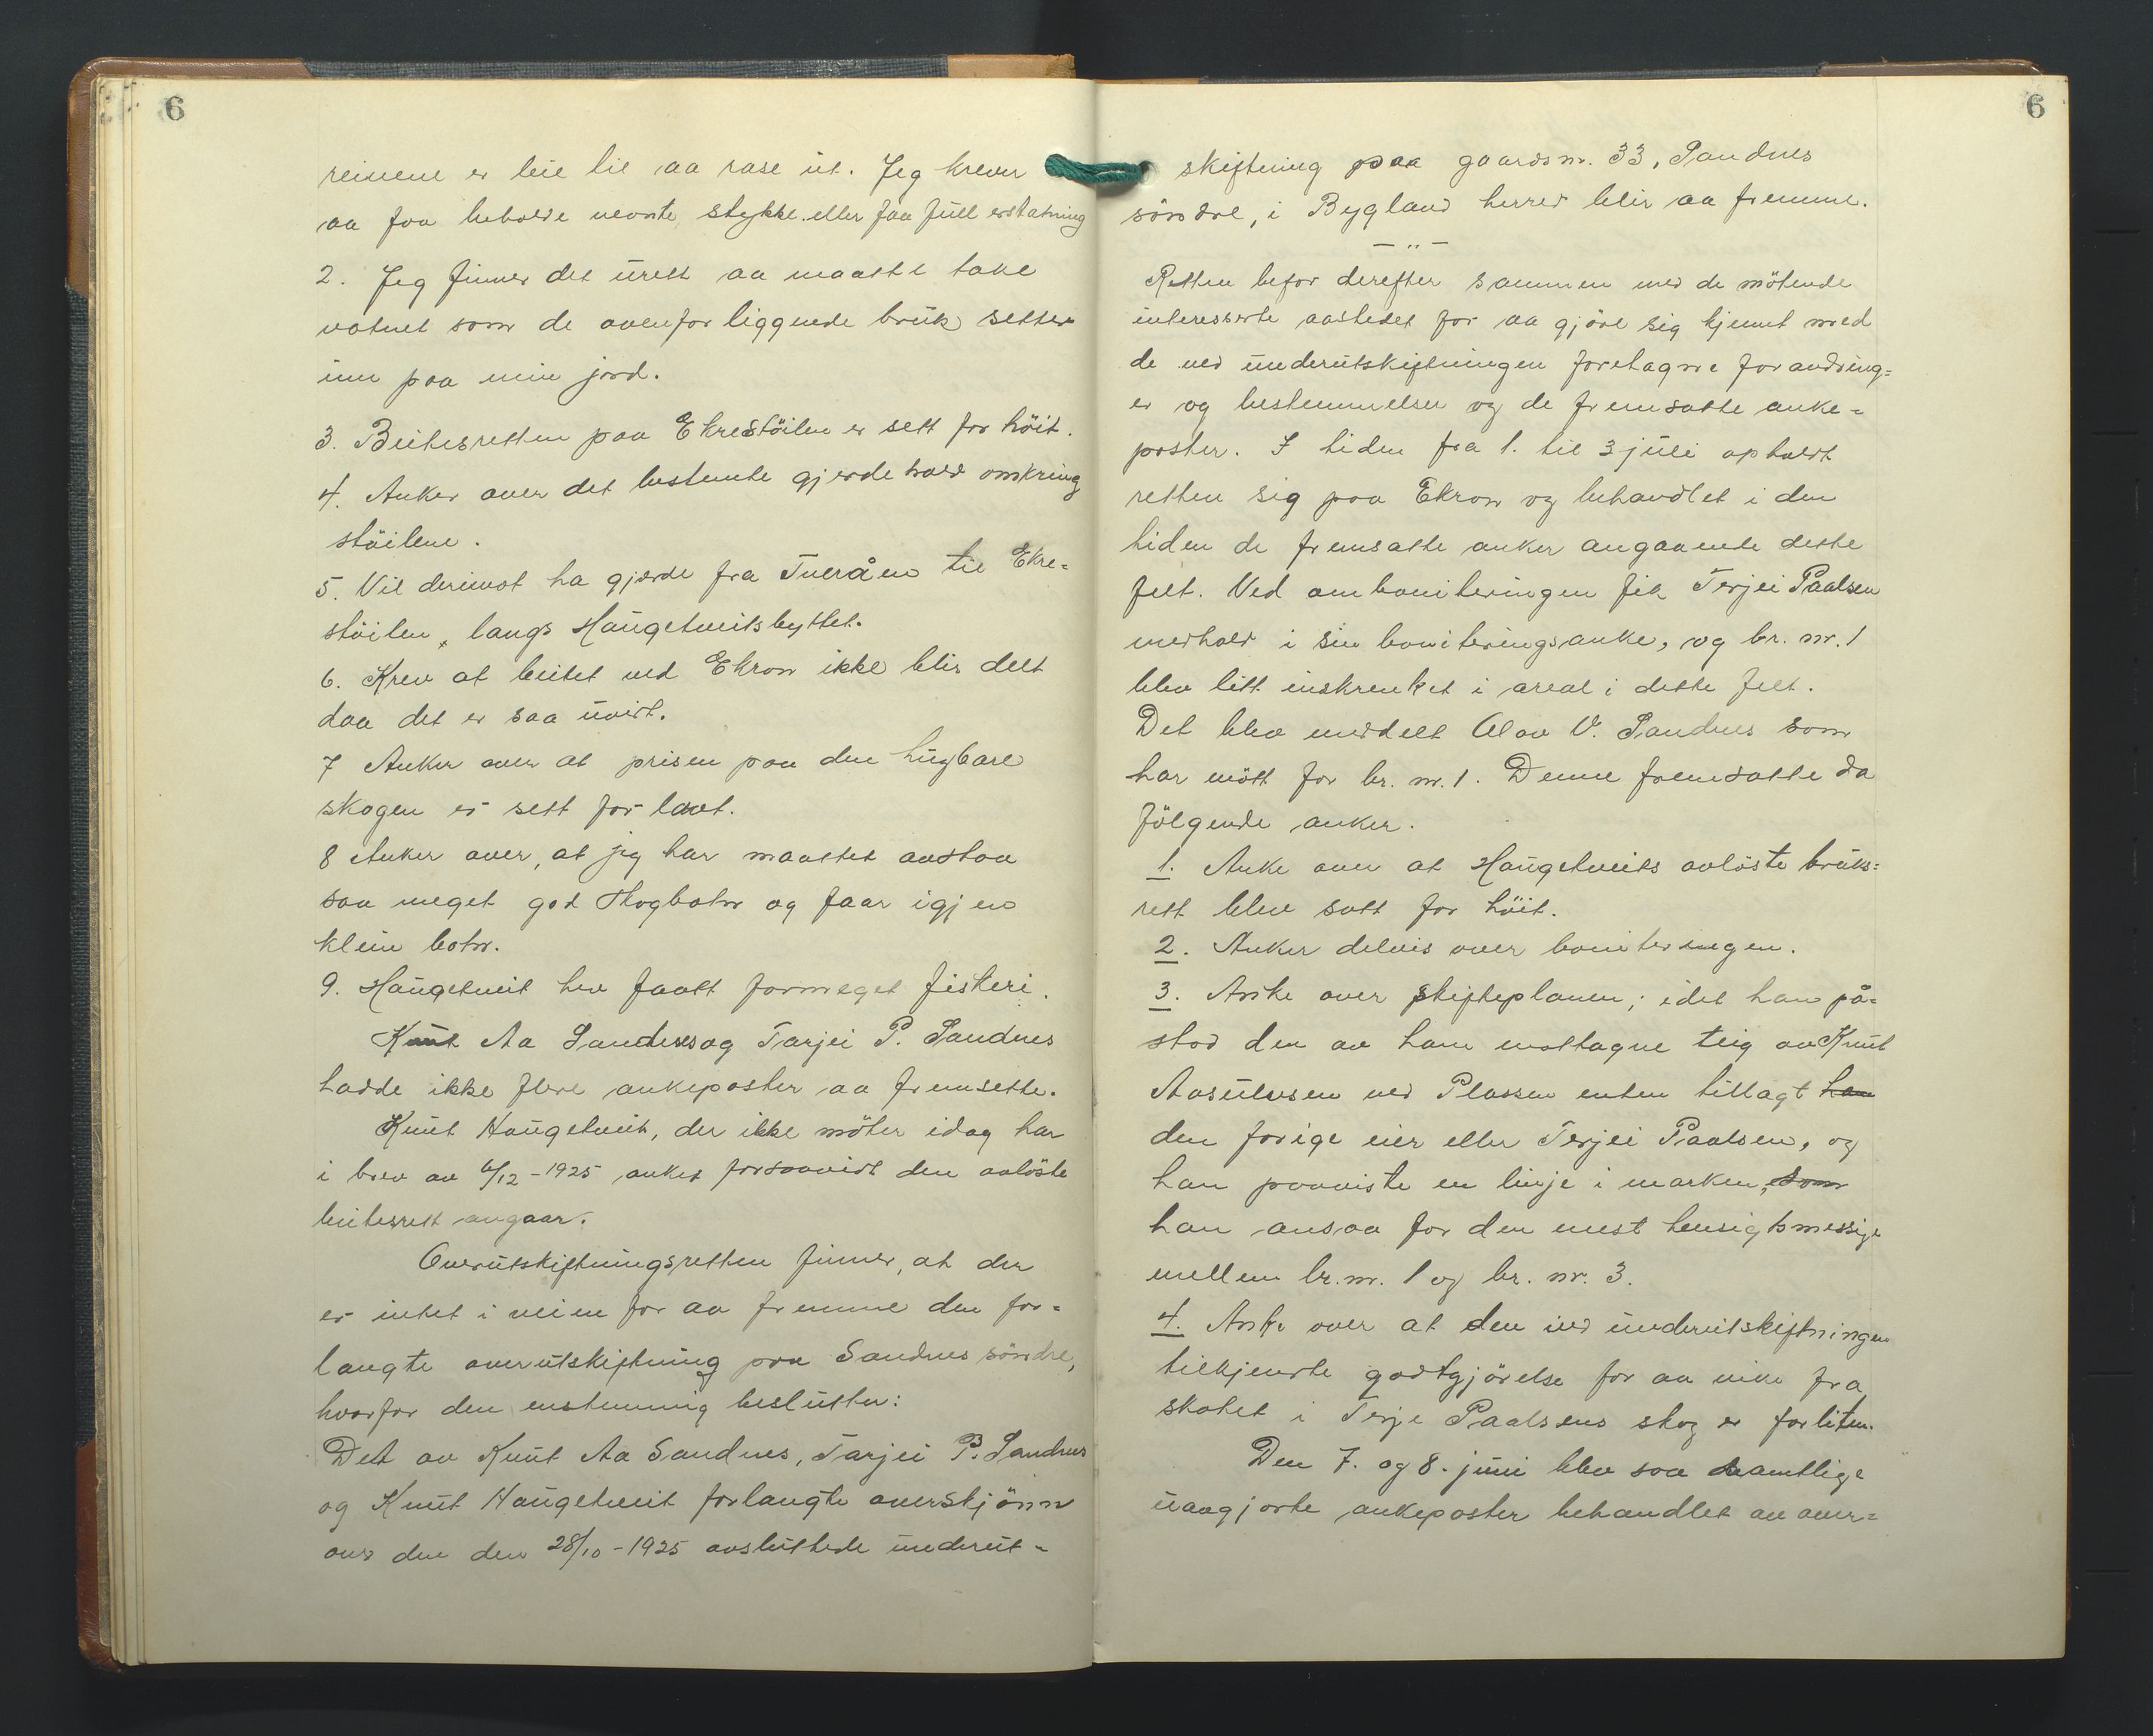 6
reinene er leie til aa rase ut. Jeg krever
aa faa beholde nevnte stykke eller faa full erstatning
2. Jeg finner det urett aa maatte take
vatnet som de ovenforliggende bruk setter
inn paa min jord.
3. Beitesretten paa Ekrestöilen er sett for höit.
4. Anker over det bestemte gjerdehold omkring
stöilene.
5. Vil derimot ha gjerde fra Tveråen til Ekre=
stöilen, langs Haugetveitsbyttet.
6. Krev at beitet ved Ekron ikke blir delt
daa det er saa uvist.
7 Anker over at prisen paa den hugbare
skogen er sett for lavt.
8 Anker over, at jeg har maattet avstaa
saa meget god skogbotn og faar igjen
klein botn.
9. Haugetveit hev faatt formeget fiskeri.
Knut Aa Sandnes og Tarjei P. Sandnes
hadde ikke flere ankeposter aa fremsette.
Knut Haugetveit, der ikke möter idag har
i brev av 6/12-1925 anket forsaavidt den avlöste
beitesrett angaar.
Overutskiftningsretten finner, at der
er intet i veien for aa fremme den for=
langte overutskiftning paa Sandnes söndre,
hvorfor den enstemmig beslutter:
Det av Knut Aa Sandnes, Tarjei P. Sandnes
og Knut Haugetveit forlangte overskjönn
over den den 28/10-1925 avsluttede underut=
6
skiftning paa gaardsnr. 33, Sandnes
söndre, i Bygland herred blir aa fremme.
— „ —
Retten befor derefter sammen med de mötende
interesserte aastedet for aa gjöre sig kjennt med
de ved underutskiftningen foretagne forandring=
er og bestemmelser og de fremsatte anke=
poster. I tiden fra 1. til 3 juli opholdt
retten sig paa Ekron og behandlet i den
tiden de fremsatte anker angaaende dette
felt. Ved omboniteringen fik Terjei Paalsen
medhold i sin boniteringsanke, og br. nr. 1
blev litt inskrenket i areal i dette felt.
Det blev meddelt Olav V. Sandnes som
har mött for br. nr. 1. Denne fremsatte da
fölgende anker.
1. Anke over at Haugetveits avlöste bruks=
rett blev satt for höit.
2. Anker delvis over boniteringen.
3. Anke over skifteplanen; idet han på=
stod den av ham mottagne teig av Knut
Aasulvsen ved Plassen enten tillagt han
den forige eier eller Terjei Paalsen, og
han paaviste en linje i marken, som
han ansaa for den mest hensigtsmessige
mellem br. nr. 1 og br. nr. 3.
4. Anke over at den ved underutskiftningen
tilkjennte godtgjörelse for aa vike fra
skatet i Terje Paalsens skog er forliten.
Den 7. og 8. juni blev saa samtlige
uavgjorte ankeposter behandlet av over=